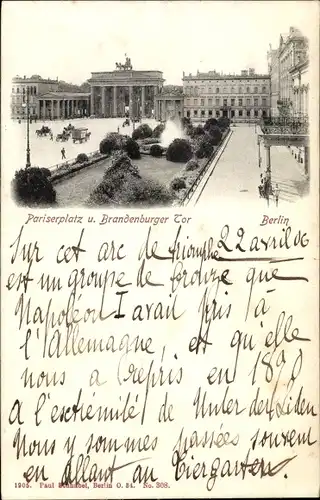 Pariserplatz u. Brandenburger Tor
Berlin
22 avril 06
Sur cet arc de triomphe
est un groupe de bronze que
Napoléon I avait pris à
l'Allemagne, et qu'elle
nous a repris en 1870
A l'extrémité de Unter den Linden
Nous y sommes passées souvent
en allant au Tiergarten.
1905. Paul Berlin O. 34. No. 308.